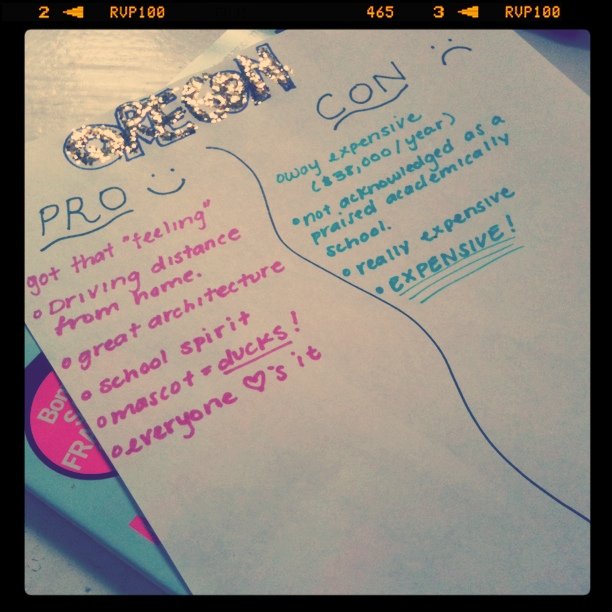 2 RVP100 465 3 RVP100
OREGON
PRO
got that "feeling"
Driving distance
from home.
great architecture
school spirit
mascot = ducks!
everyone ♡'s it
CON
way expensive
($38,000/year)
not acknowledged as a
praised academically
school.
really expensive
EXPENSIVE!
Bon
FRA